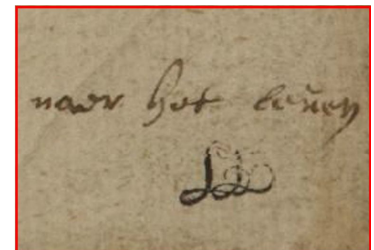 naer het leuen